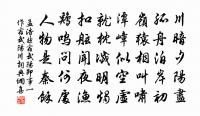 川暗夕陽盡
孤舟泊岸初
嶺猿相叫嘯
潭嶂似空虛
就枕滅明燭
扣舷聞夜漁
雞鳴問何處
人物是秦餘
孟浩然宿武陵即事一
作宿武陵川詞典網